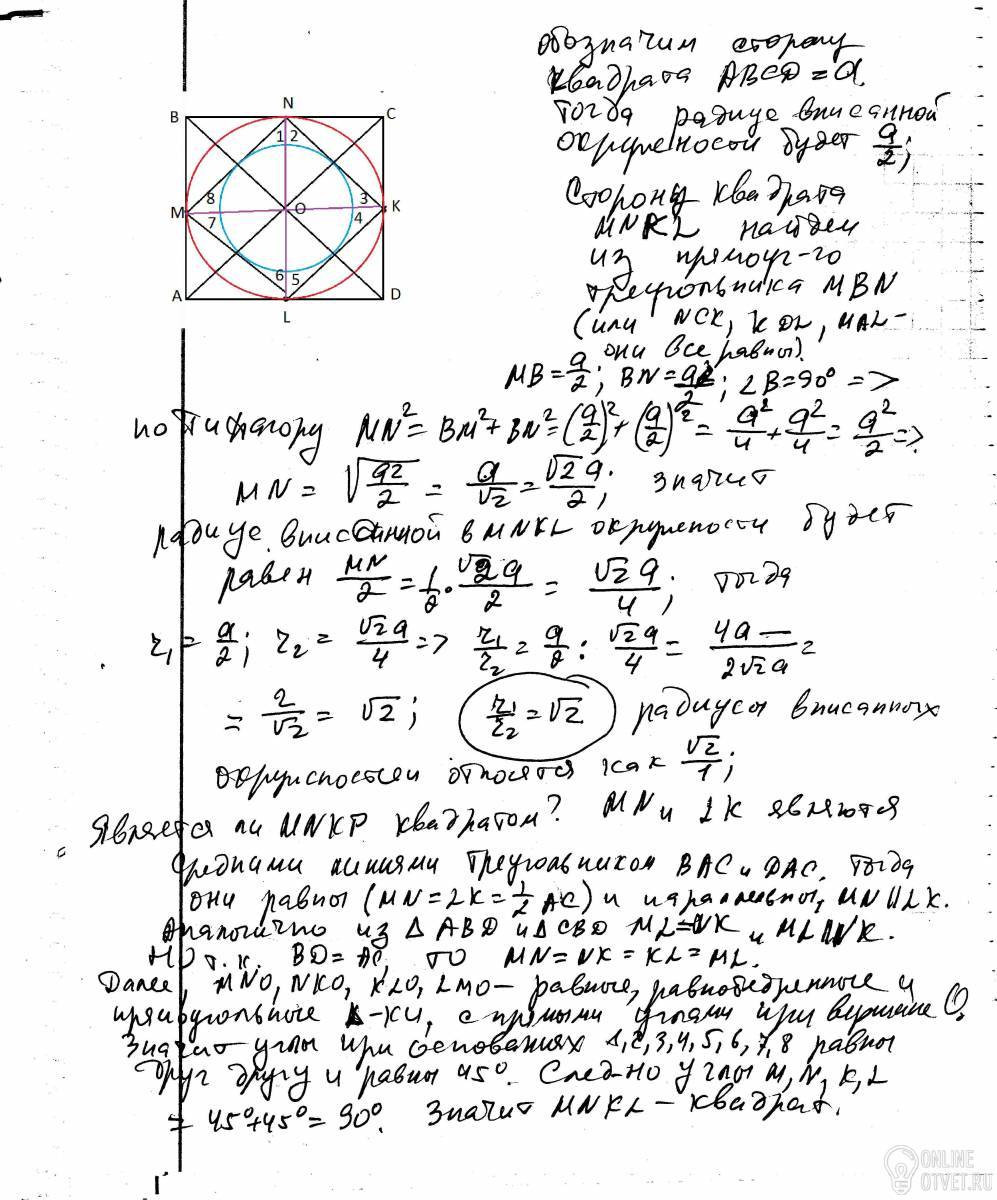 обозначим сторону
квадрата ABCD = a.
Тогда радиус вписанной
окружности будет a/2;
B N C
1 2
8 3
M O K
7 4
6 5
A D
L
Сторону квадрата
MNKL найдем
из прямоуг-го
треугольника MBN
(или NCK, KDL, MAL-
они все равны).
MB = a/2; BN = a/2; ∠B = 90° =>
по Пифагору MN² = BM² + BN² = (a/2)² + (a/2)² = a²/4 + a²/4 = a²/2 =>
MN = √(a²/2) = a/√2 = √2a/2; значит
радиус вписанной в MNKL окружности будет
равен MN/2 = 1/2 · √2a/2 = √2a/4; тогда
r₁ = a/2; r₂ = √2a/4 => r₁/r₂ = a/2 : √2a/4 = 4a/2√2a =
= 2/√2 = √2; r₁/r₂ = √2 радиусы вписанных
окружностей относятся как √2/1;
Является ли MNKP квадратом? MN и LK являются
средними линиями треугольников BAC и DAC. Тогда
они равны (MN = LK = 1/2 AC) и параллельны, MN || LK.
Аналогично из Δ ABD и Δ CBD ML = NK и ML || NK.
Но т.к. BD = AC, то MN = NK = KL = ML.
Далее, MNO, NKO, KLO, LMO – равные, равнобедренные и
прямоугольные Δ-ки, с прямыми углами при вершине O.
Значит углы при основаниях 1,2,3,4,5,6,7,8 равны
друг другу и равны 45°. След-но углы M, N, K, L
= 45°+45° = 90°. Значит MNKL – квадрат.
ONLINE
OTVET.RU